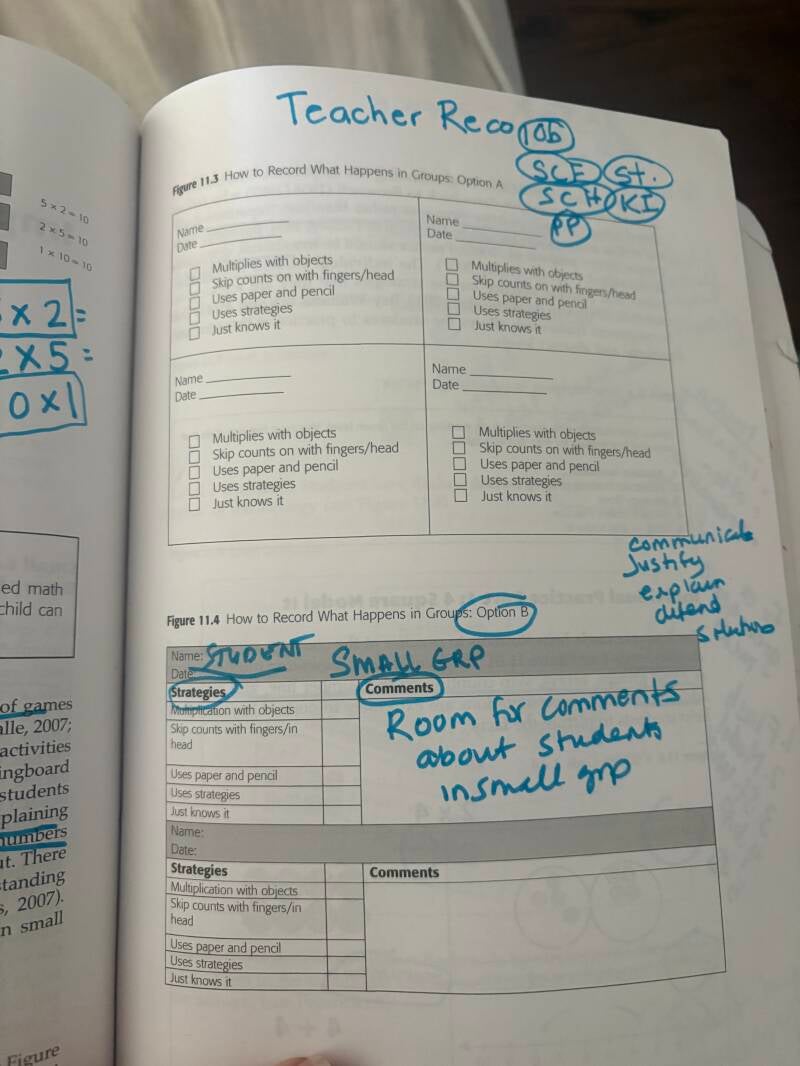 5 x 2 = 10
2 x 5 = 10
1 x 10 = 10
x 2 =
x 5 =
0 x 1
ed math
child can
of games
alle, 2007;
activities
ingboard
students
plaining
numbers
ut. There
tanding
s, 2007).
n small
Figure
Teacher Reco
SCF St.
SCH KI
PP
Figure 11.3 How to Record What Happens in Groups: Option A
Name
Date
Multiplies with objects
Skip counts on with fingers/head
Uses paper and pencil
Uses strategies
Just knows it
Name
Date
Multiplies with objects
Skip counts on with fingers/head
Uses paper and pencil
Uses strategies
Just knows it
Name
Date
Multiplies with objects
Skip counts on with fingers/head
Uses paper and pencil
Uses strategies
Just knows it
Name
Date
Multiplies with objects
Skip counts on with fingers/head
Uses paper and pencil
Uses strategies
Just knows it
communicate
Justify
explain
defend
Figure 11.4 How to Record What Happens in Groups: Option B
Name: STUDENT SMALL GRP
Date:
Strategies
Multiplication with objects
Skip counts with fingers/in
head
Uses paper and pencil
Uses strategies
Just knows it
Comments
Room for comments
about students
in small grp
Name:
Date:
Strategies
Multiplication with objects
Skip counts with fingers/in
head
Uses paper and pencil
Uses strategies
Just knows it
Comments